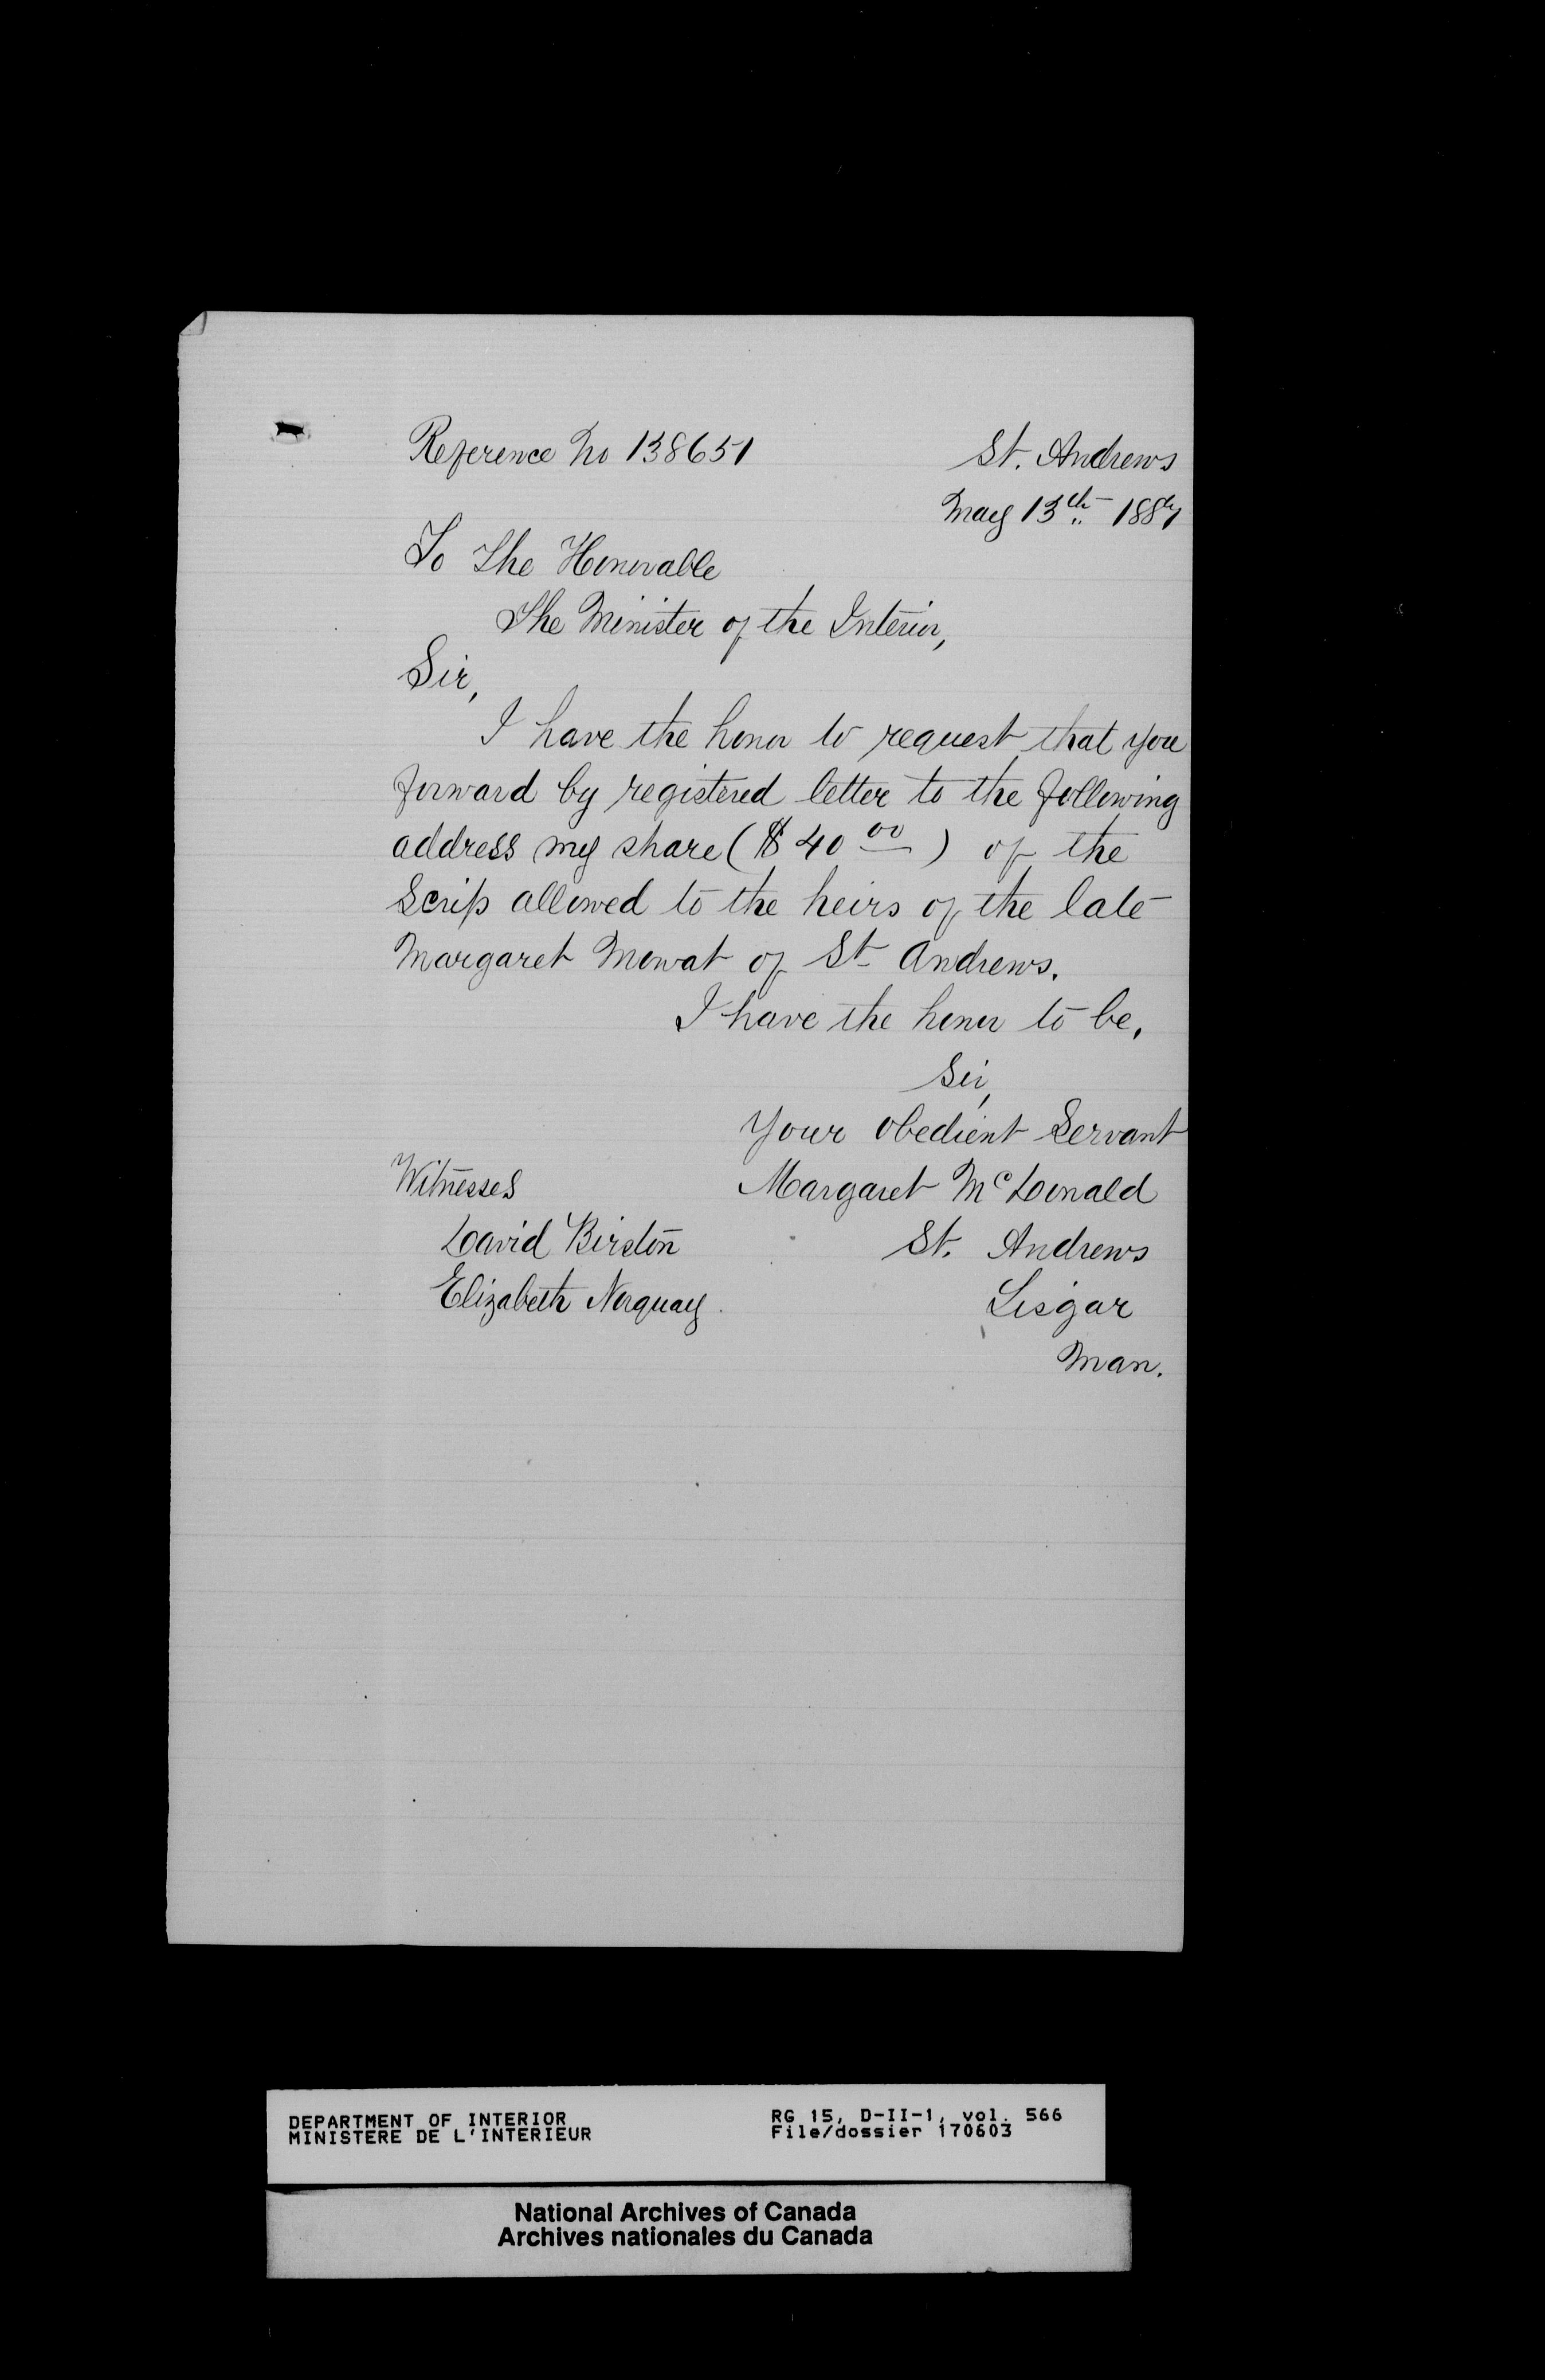 Reference No 138651
St. Andrews
May 13th 1887
To The Honorable
The Minister of the Interior,
Sir,
I have the honor to request that you
forward by registered letter to the following
address my share ($40 00) of the
Scrip allowed to the heirs of the late
Margaret Mowat of St Andrews.
I have the honor to be,
Sir,
Your obedient Servant
Witnesses
Margaret McDonald
David Birston
St. Andrews
Elizabeth Norquay.
Lisgar
Man.
DEPARTMENT OF INTERIOR
MINISTERE DE L'INTERIEUR
RG 15, D-II-1, vol. 566
File/dossier 170603
National Archives of Canada
Archives nationales du Canada